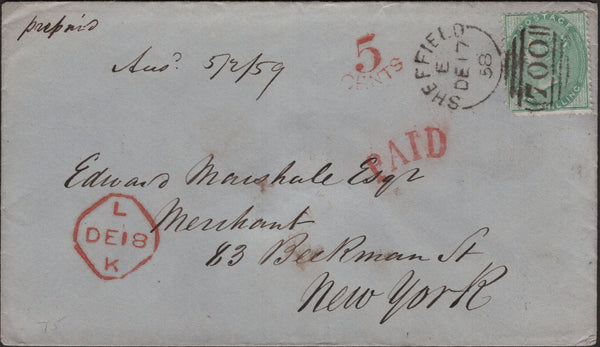 prepaid
Ansd. 5/2/59
5
CENTS
SHEFFIELD
E
DE 17
58
700
POSTAGE
SHILLING
PAID
Edward Marshall Esqr
Merchant
83 Beekman St
New York
L
DE 18
K
75